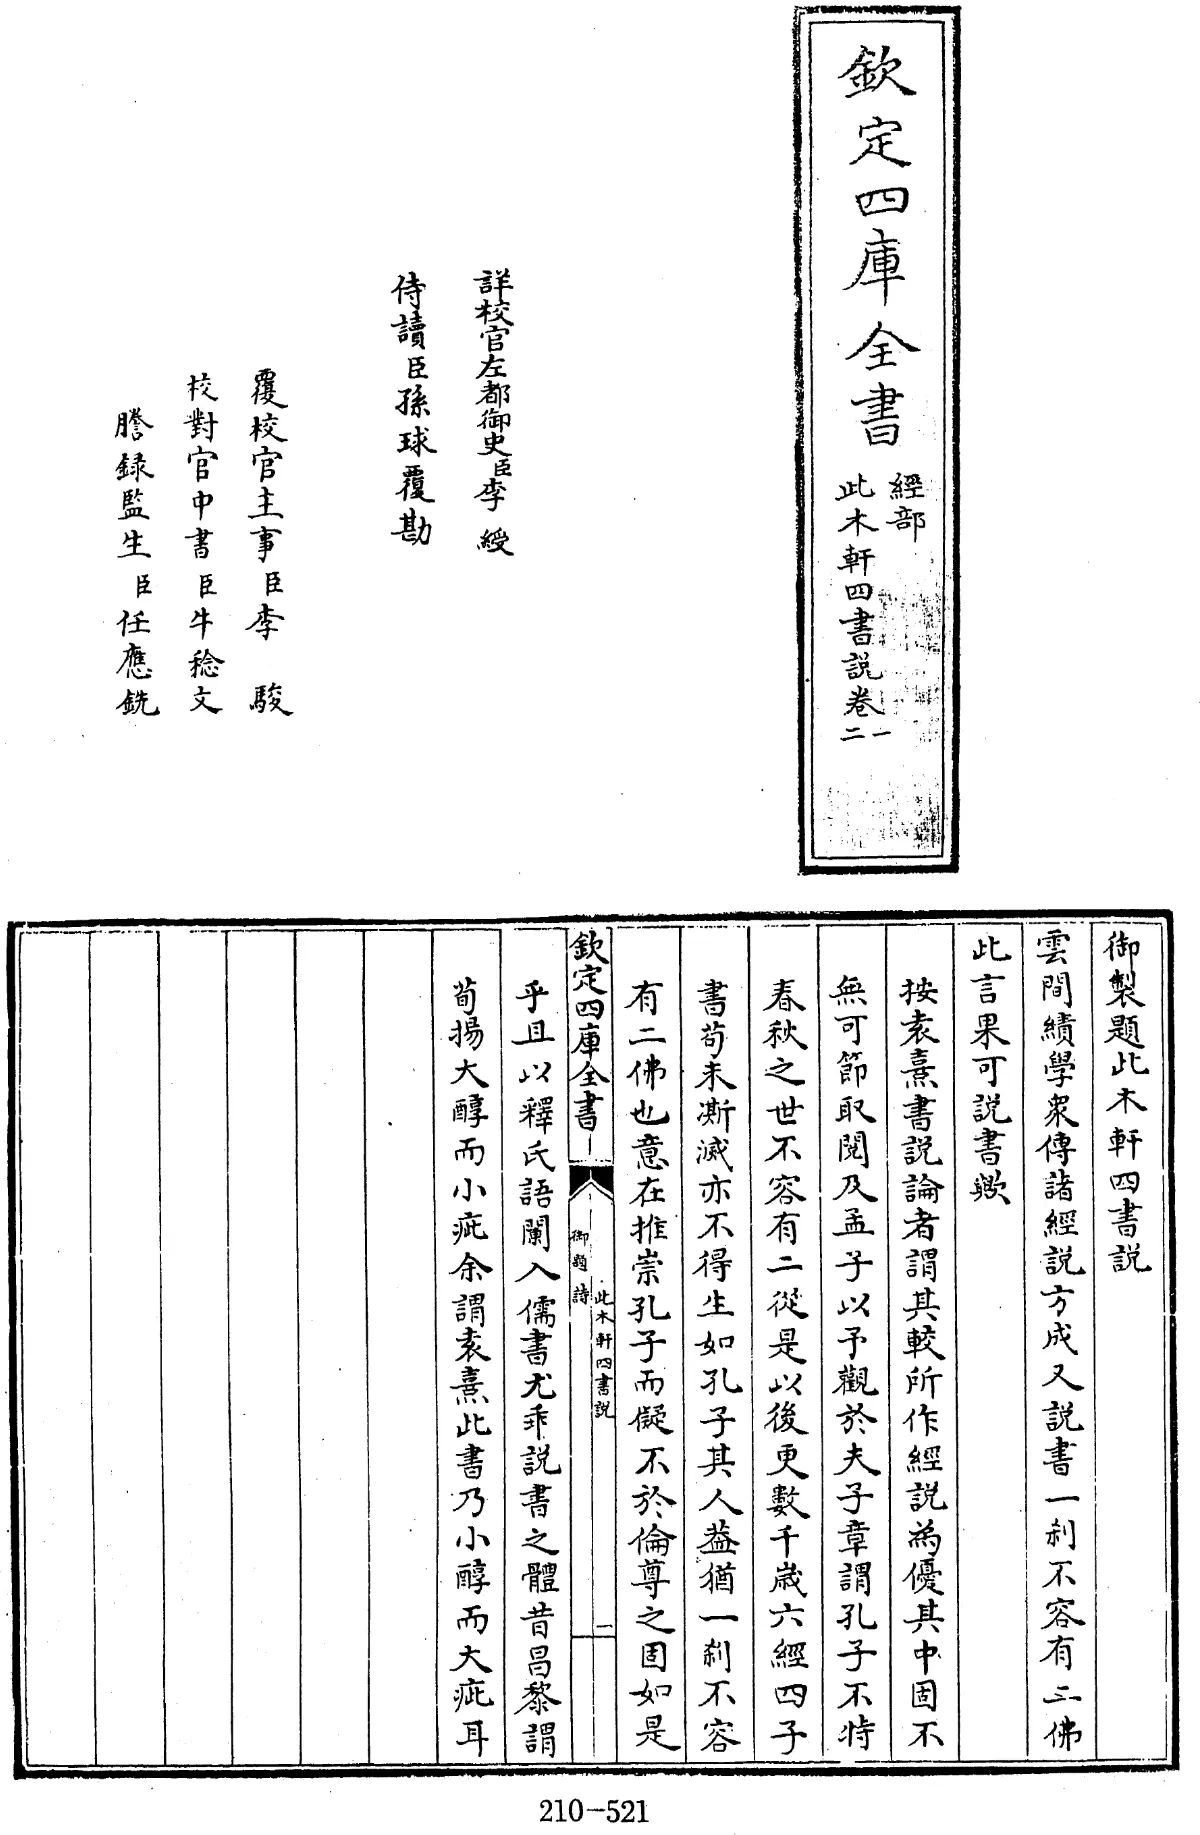 欽定四庫全書
經部
此木軒四書説卷一二
詳校官左都御史臣李綬
侍讀臣孫球覆勘
覆校官主事臣李駿
校對官中書臣牛稔文
謄錄監生臣任應銑
御製題此木軒四書説
雲間績學衆傳諸經説方成又説書一刹不容有二佛
此言果可説書歟
按袁熹書説論者謂其較所作經説為優其中固不
無可節取閱及孟子以予觀於夫子章謂孔子不特
春秋之世不容有二從是以後更數千歲六經四子
書苟未澌滅亦不得生如孔子其人葢猶一刹不容
有二佛也意在推崇孔子而儗不於倫尊之固如是
欽定四庫全書
此木軒四書説
御題詩
一
乎且以釋氏語闌入儒書尤乖説書之體昔昌黎謂
荀揚大醇而小疵余謂袁熹此書乃小醇而大疵耳
210-521